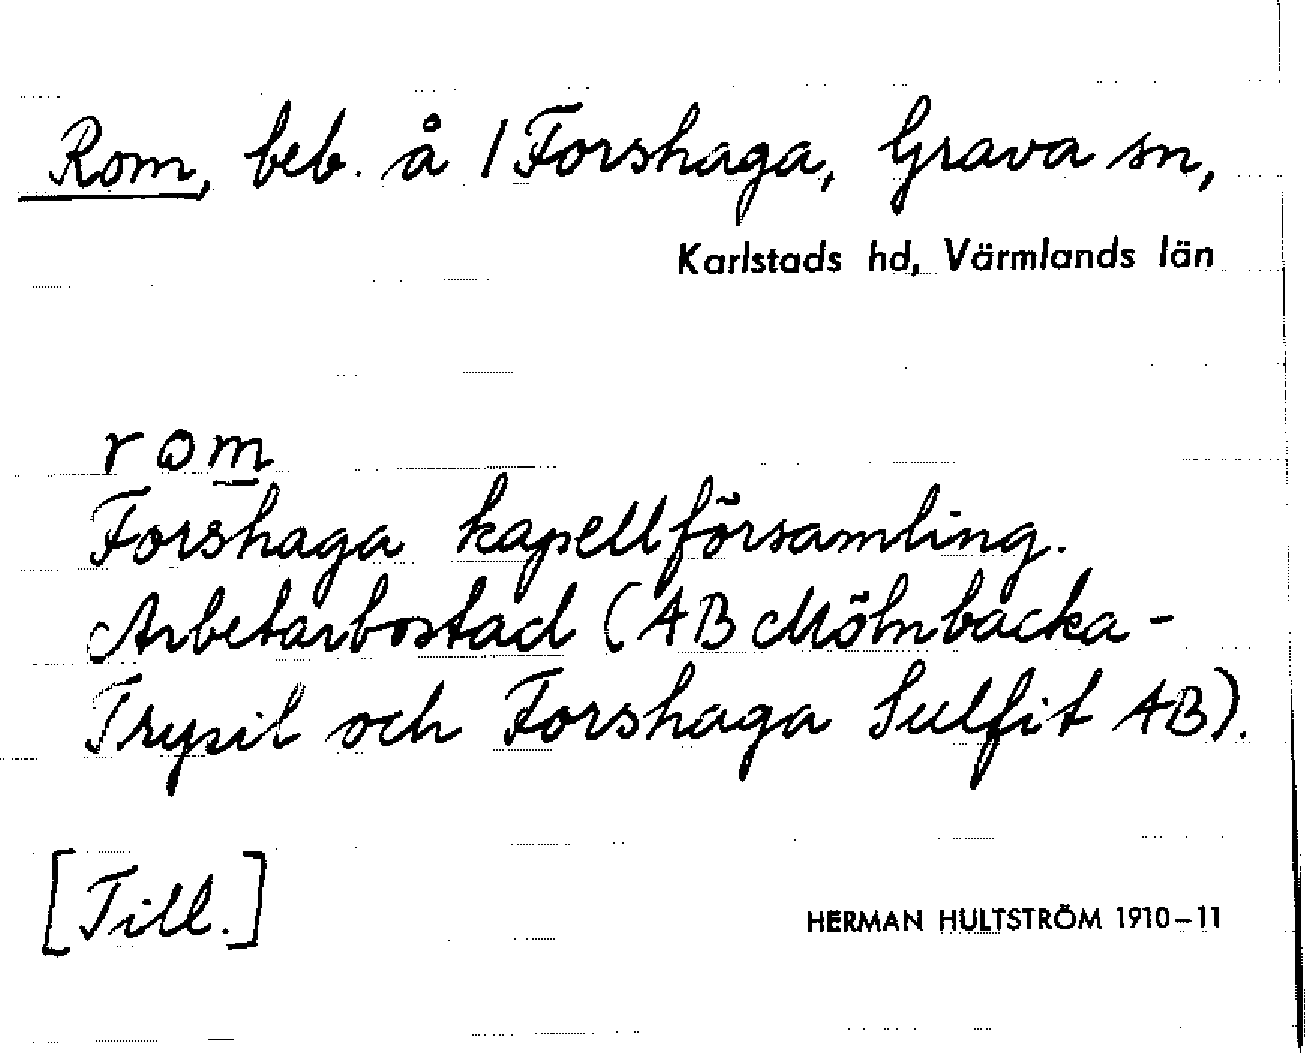 Rom, beb. å 1 Forshaga, Grava sn,
Karlstads hd, Värmlands län
rom
Forshaga kapellförsamling.
Arbetarbostad (AB Mölnbacka-
Trysil och Forshaga Sulfit AB).
[Till.]
HERMAN HULTSTRÖM 1910–11